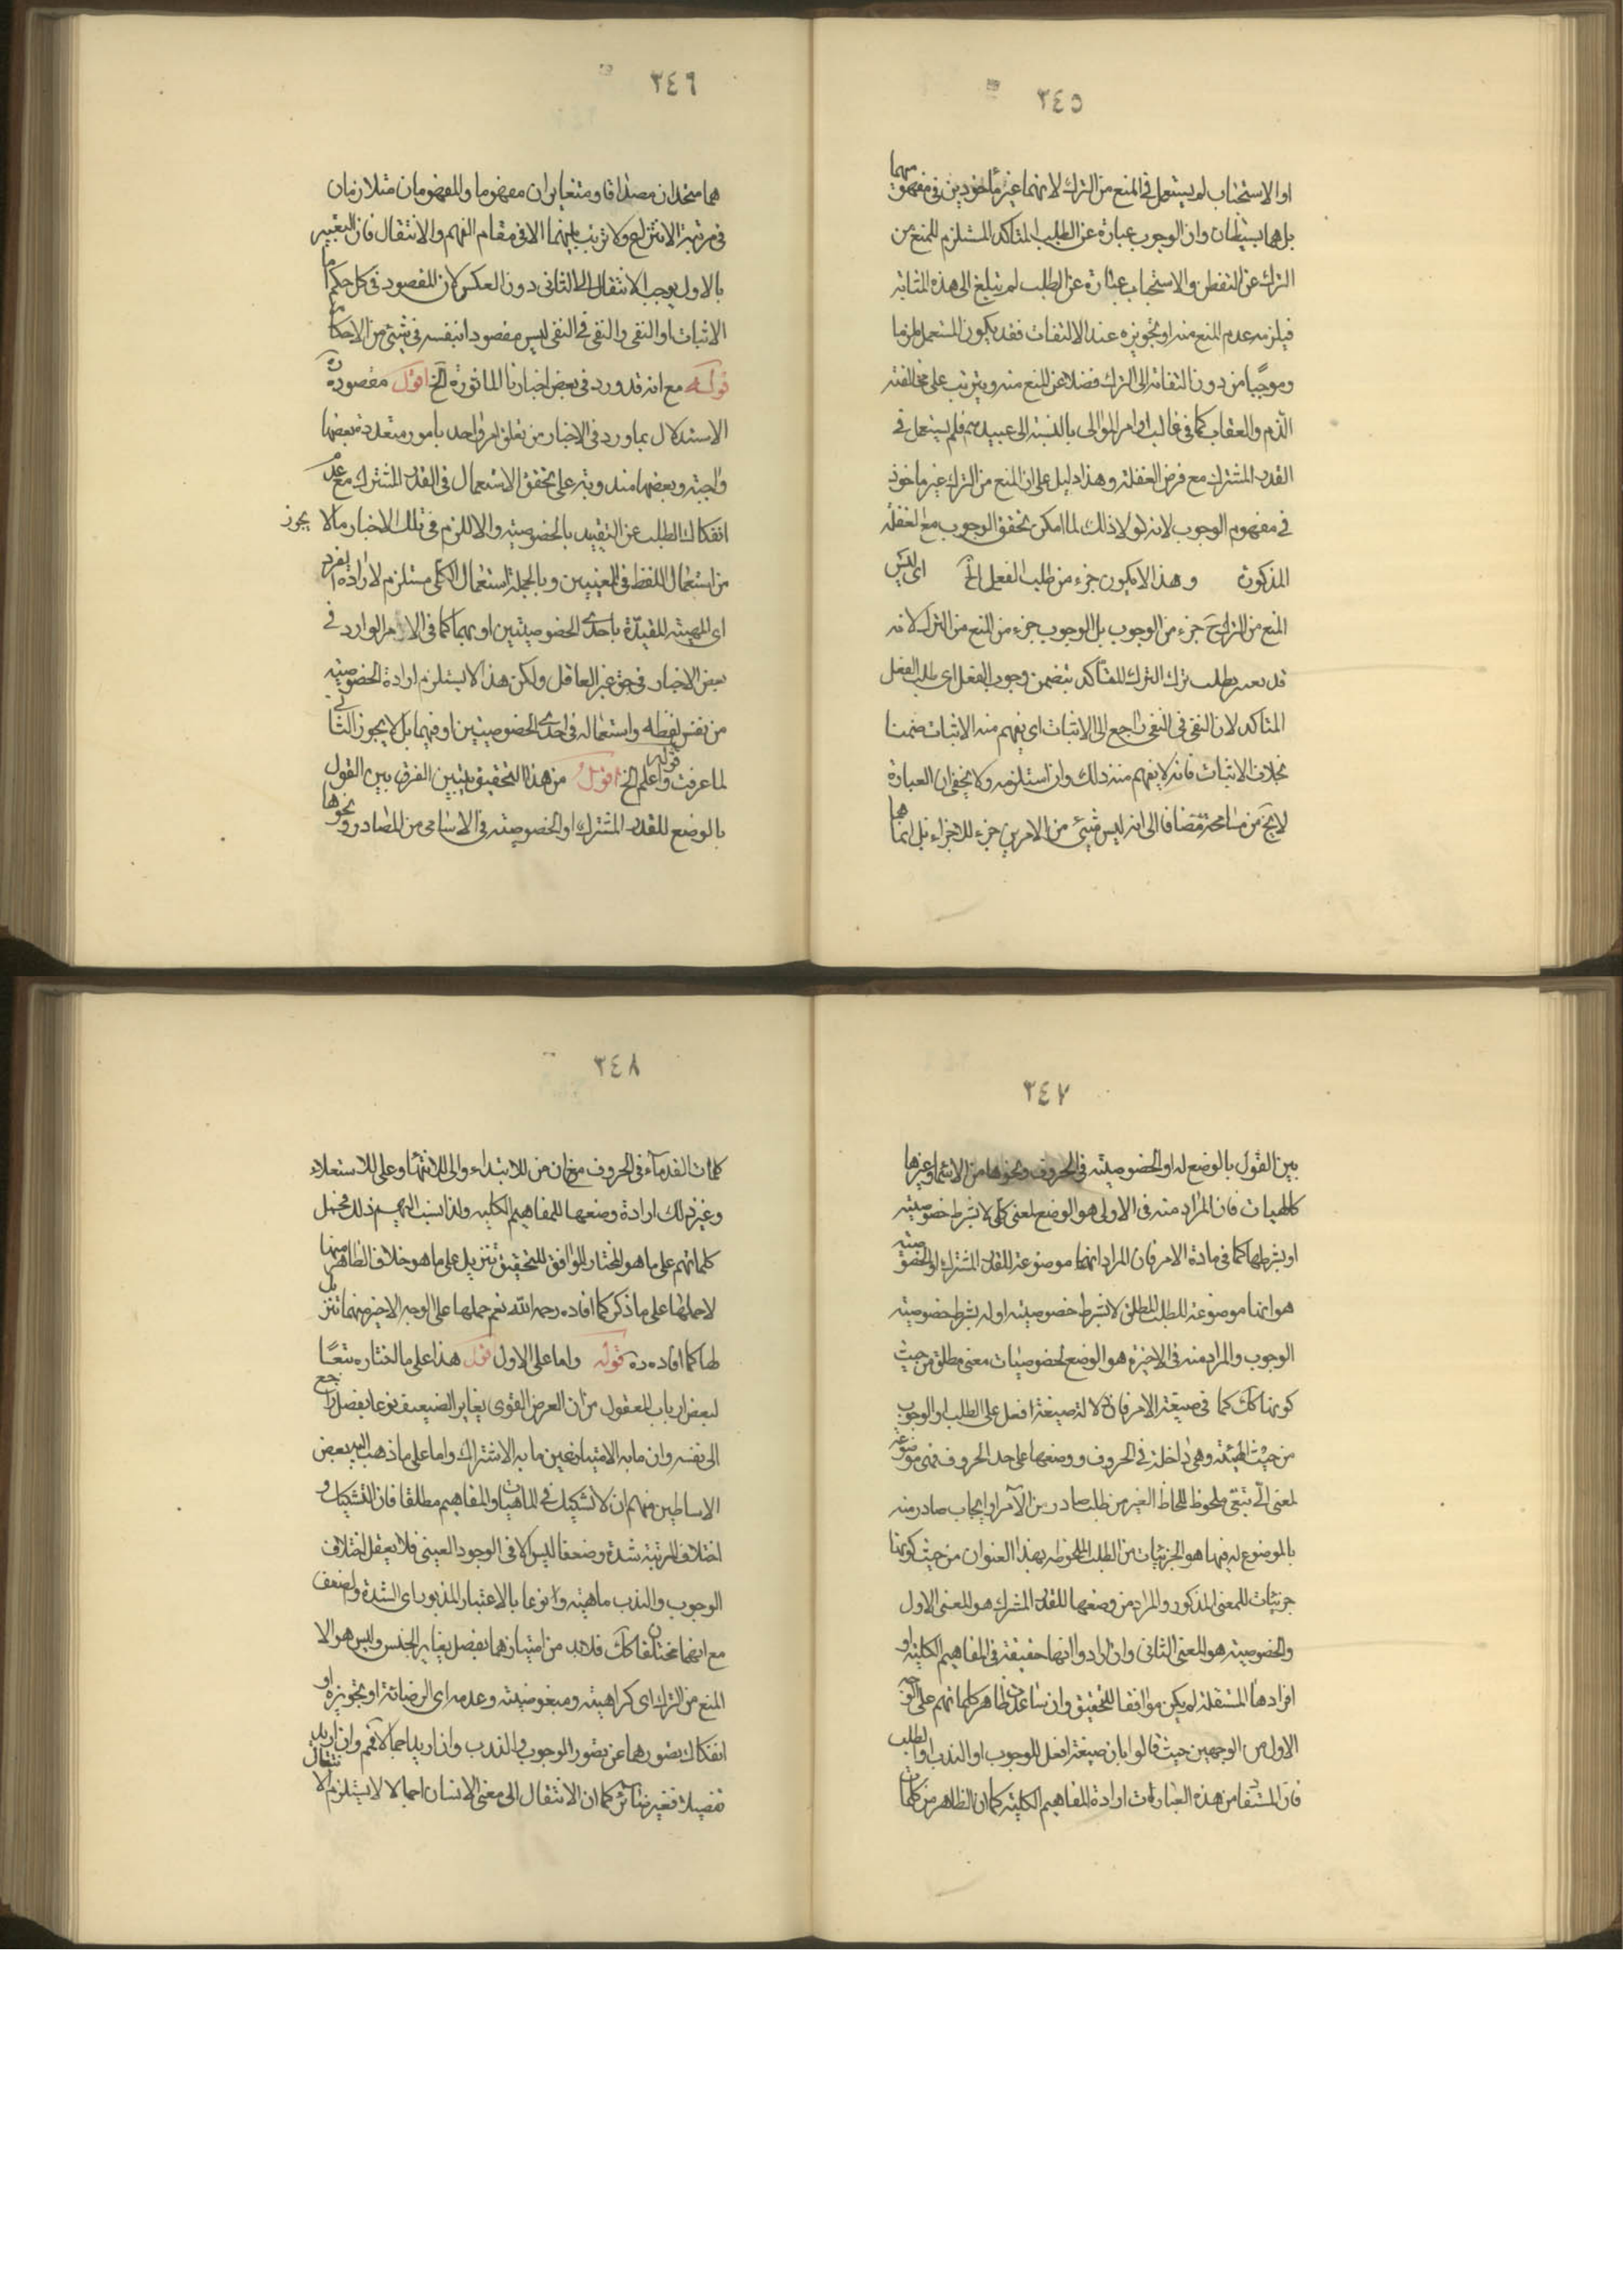 ٣٤٥
او الاستحباب لم يستعمل فى المنع من الترك لانهما غير ماخوذين فى مفهومهما
بل هما بسيطان وان الوجوب عبارة عن الطلب المتاكد المستلزم للمنع من
الترك عن التفطن والاستحباب عبارة عن الطلب لم يبلغ الى هذه المثابه
فيلزمه عدم المنع منه او تجويزه عند الالتفات فقد يكون المستعمل ملزما
وموجبا من دون التفاته الى الترك فضلا عن المنع منه ويترتب على مخالفته
الذم والعقاب كما فى غالب اوامر الموالى بالنسبة الى عبيدهم فلم يستعمل فى
القدر المشترك مع فرض الغفلة وهذا دليل على ان المنع من الترك غير ماخوذ
فى مفهوم الوجوب لانه لو لا ذلك لما امكن تحقق الوجوب مع الغفلة
المذكورة وهذا لا يكون جزء من طلب الفعل الخ اى ليس
المنع من الترك ح جزء من الوجوب بل الوجوب جزء من المنع من الترك لانه
قد يعبر بطلب ترك الترك المتاكد يتضمن وجوب الفعل اى طلب الفعل
المتاكد لان النفى فى النفى راجع الى الاثبات اى يفهم منه الاثبات ضمنا
بخلاف الاثبات فانه لا يفهم منه ذلك وان استلزمه ولا يخفى ان العبارة
لا يخ من مسامحة مضافا الى انه ليس شيئ من الامرين جزء للاجزاء بل انما هما
٣٤٦
هما متحدان مصداقا ومتغايران مفهوما والمفهومان متلازمان
فى مرتبة الانتزاع ولا ترتب بينهما الا فى مقام الفهم والانتقال فان التعبير
بالاول يوجب الانتقال الى الثانى دون العكس لان المقصود فى كل حكم اما
الاثبات او النفى والنفى فى النفى ليس مقصودا بنفسه فى شيئ من الاحكام
قوله مع انه قد ورد فى بعض اخبارنا الماثورة الخ اقول مقصوده ره
الاستدلال بما ورد فى الاخبار من تعلق امر واحد بامور متعدده بعضها
واجبة وبعضها مندوبة على تحقق الاستعمال فى القدر المشترك مع عدم
انفكاك الطلب عن التقييد بالخصوصيته والا للزم فى تلك الاخبار ما لا يجوز
من استعمال اللفظ فى المعنيين وبالجملة استعمال الكلى مستلزم لارادة الفرد
اى المهية المقيدة باحدى الخصوصيتين او بهما كما فى الاوامر الوارد فى
بعض الاخبار فى حق غير العاقل ولكن هذا لا يستلزم ارادة الخصوصيته
من نفس لفظه واستعماله فى احدى الخصوصيتين او فيهما بل لا يجوز الثانى
لما عرفت قوله واعلم الخ اقول من هذا التحقيق يتبين الفرق بين القول
بالوضع للقدر المشترك او الخصوصيته فى الاسامى من المصادر ونحوها
٣٤٧
بين القول بالوضع له او الخصوصيته فى الحروف ونحوها من الاسماء وغيرها
كالهيات فان المراد منه فى الاولى هو الوضع لمعنى كلى لا بشرط خصوصيته
او بشرطها كما فى مادة الامر فان المراد انها موضوعة للقدر المشترك او الخصوصيته
هو انها موضوعة للطلب المطلق لا بشرط خصوصيته او له بشرط خصوصيته
الوجوب والمراد منه فى الاخيرة هو الوضع لخصوصيات معنى مطلق من حيث
كونها كك كما فى صيغة الامر فان دلالة صيغة افعل على الطلب او الوجوب
من حيث الهيئة وهى داخلة فى الحروف ووضعها على حد الحروف فهى موضوعة
لمعنى الى تبقى ملحوظ للحاظ الغير من طلب صادر من الآمر او ايجاب صادر منه
بالموضوع له فيها هو الجزئيات من الطلب الملحوظه بهذا العنوان من حيث كونها
جزئيات للمعنى المذكور والمراد من وضعها للقدر المشترك هو المعنى الاول
والخصوصيته هو المعنى الثانى وان ارادوا انها حقيقة فى المفاهيم الكلية او
افرادها المستقلة لم يكن موافقا للتحقيق وان ساعدت ظاهر كلماتهم على الوجه
الاول من الوجهين حيث قالوا بان صيغة افعل للوجوب او الندب او الطلب
فان المستفاد من هذه العبارات ارادة المفاهيم الكلية كما ان الظاهر من كلمات
٣٤٨
كلمات القدماء فى الحروف من ان من للابتداء والى للانتهاء وعلى للاستعلاء
وغير ذلك ارادة وضعها للمفاهيم الكليه ولذا نسب اليهم ذلك فحمل
كلماتهم على ما هو المختار الموافق للتحقيق تنزيل على ما هو خلاف الظاهر منها
لا حملها على ما ذكر كما افاده رحمه الله نعم حملها على الوجه الاخير منهما تنزيل
لها كما افاده ره قوله واما على الاول اقول هذا على ما اختاره تبعا
لبعض ارباب المعقول من ان العرض القوى يغاير الضعيف نوعا بفصل راجع
الى نفسه وان ما به الامتياز عين ما به الاشتراك واما على ما ذهب اليه بعض
الاساطين منهم ان لا تشكيك فى الماهيات والمفاهيم مطلقا فان التشكيك و
اختلاف المرتبة شدة وضعفا ليس الا فى الوجود العينى فلا يعقل اختلاف
الوجوب والندب ماهيته ونوعا بالاعتبار المذبور اى الشدة والضعف
مع انهما مختلفان كك فلا بد من امتيازهما بفصل يغاير الجنس وليس هو الا
المنع من الترك اى كراهيته ومبغوضيته وعدمه اى الرضا به او تجويزه او
انفكاك تصورهما عن تصور الوجوب والندب وان اريد اجمالا فم وان اريد
تفصيلا فغير ضائر كما ان الانتقال الى معنى الانسان اجمالا لا يستلزم الانتقال